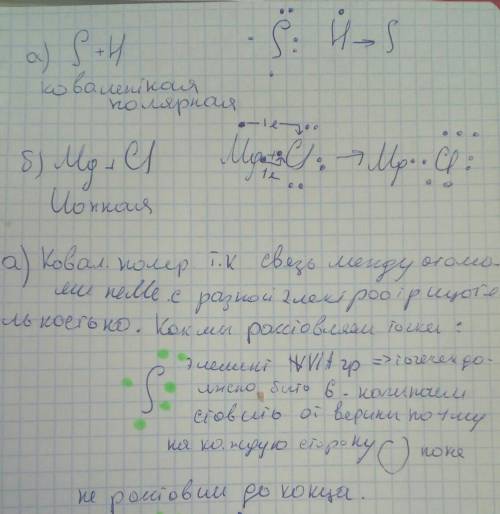 а) S + H S H → S
ковалентная
полярная
б) Mg + Cl Mg Cl → Mg Cl
1e
1e
Ионная
а) Ковал. поляр т.к связь между атома-
ми неМе с разной электроотрицате-
льностью. Как мы расставляем точки:
Элемент VIA гр => точек до-
S лжно быть 6. начинаем
ставить от верхни по 1му
на каждую сторону пока
не расставим до конца.